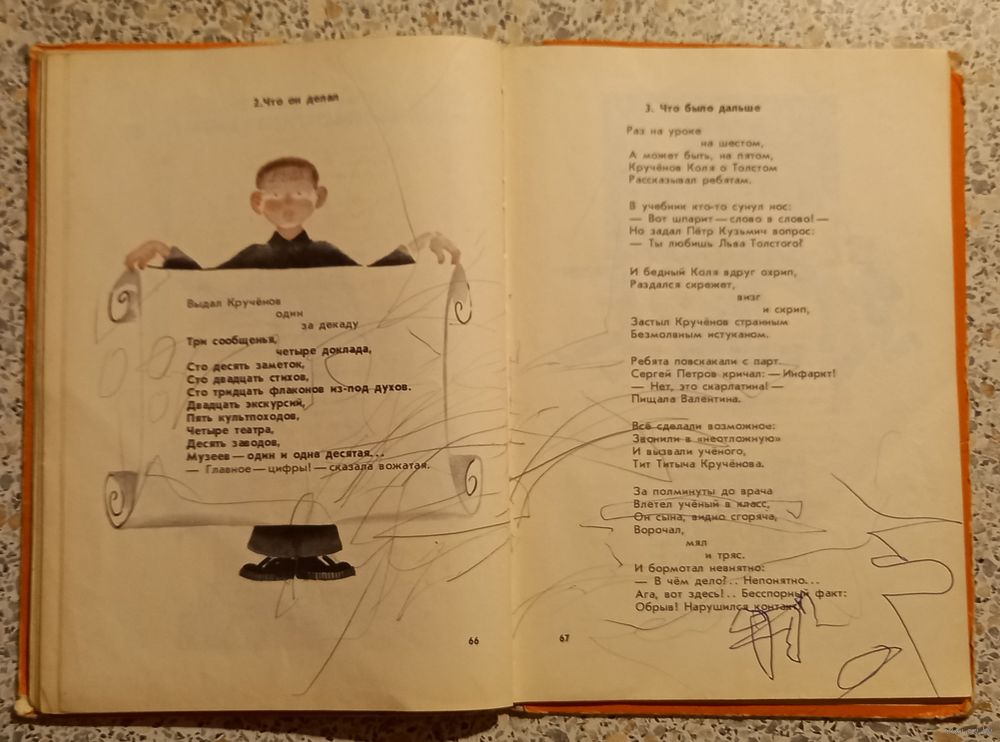 2. Что он делал
Выдал Кручёнов
один
за декаду
Три сообщенья,
четыре доклада,
Сто десять заметок,
Сто двадцать стихов,
Сто тридцать флаконов из-под духов.
Двадцать экскурсий,
Пять культпоходов,
Четыре театра,
Десять заводов,
Музеев — один и одна десятая...
— Главное — цифры! — сказала вожатая.
66
3. Что было дальше
Раз на уроке
на шестом,
А может быть, на пятом,
Кручёнов Коля о Толстом
Рассказывал ребятам.
В учебник кто-то сунул нос:
— Вот шпарит — слово в слово! —
Но задал Пётр Кузьмич вопрос:
— Ты любишь Льва Толстого?
И бедный Коля вдруг охрип,
Раздался скрежет,
визг
и скрип,
Застыл Кручёнов странным
Безмолвным истуканом.
Ребята повскакали с парт.
Сергей Петров кричал: — Инфаркт!
— Нет, это скарлатина! —
Пищала Валентина.
Всё сделали возможное:
Звонили в «неотложную»
И вызвали учёного,
Тит Титыча Кручёнова.
За полминуты до врача
Влетел учёный в класс,
Он сына, видно сгоряча,
Ворочал,
мял
и тряс.
И бормотал невнятно:
— В чём дело?.. Непонятно...
Ага, вот здесь!.. Бесспорный факт:
Обрыв! Нарушился контакт
67